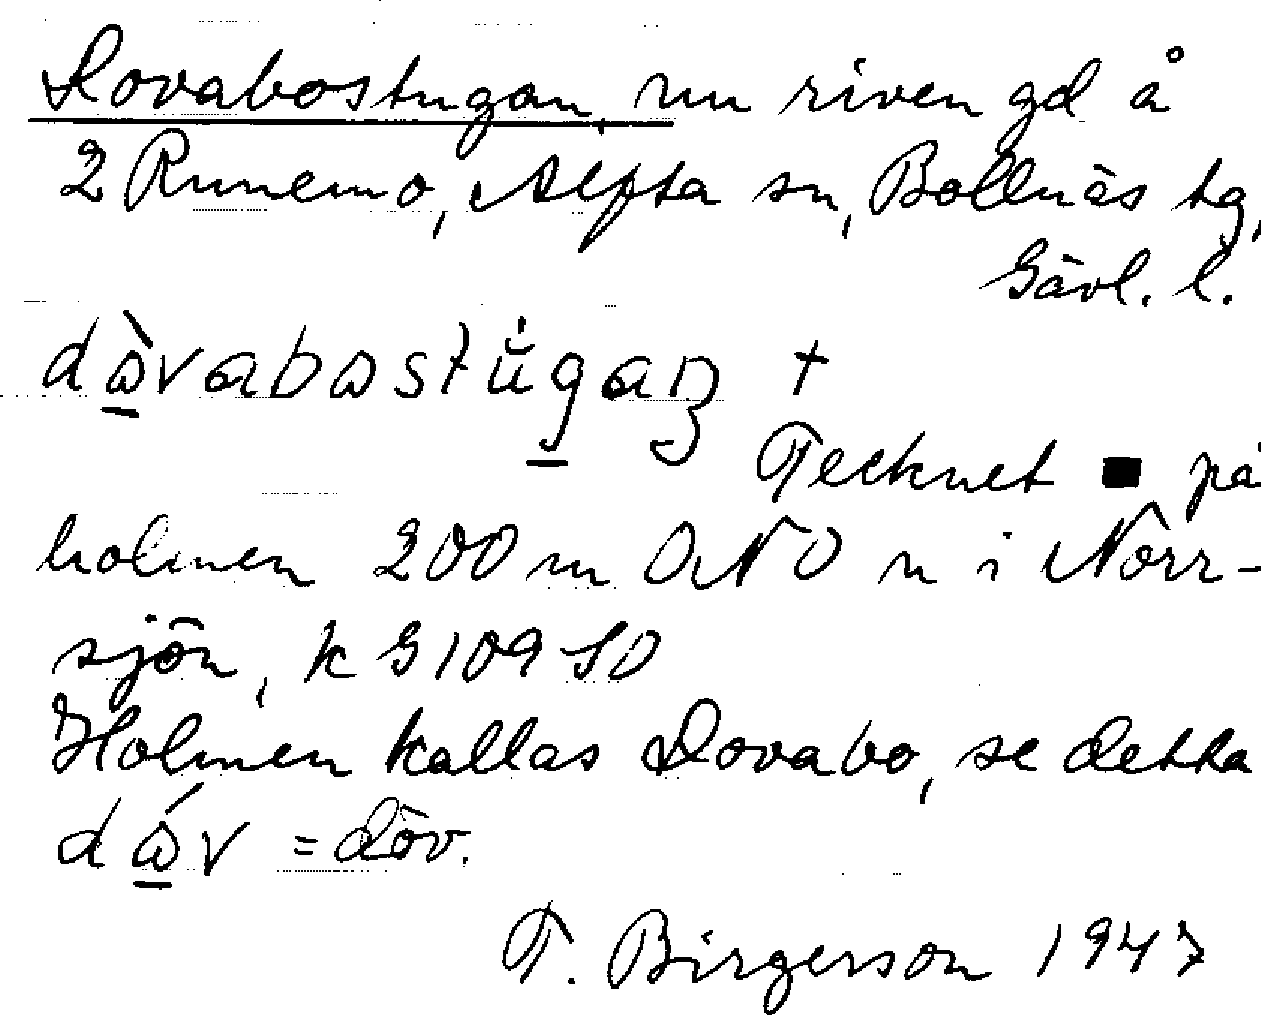 Dovabostugan, nu riven gd å
2 Runemo, Alfta sn, Bollnäs tg,
Gävl. l.
dåvabostugan +
Tecknet ■ på
holmen 200 m ONO n i Norr-
sjön, k G 109 SO
Holmen kallas Dovabo, se detta
= döv.
T. Birgerson 1947